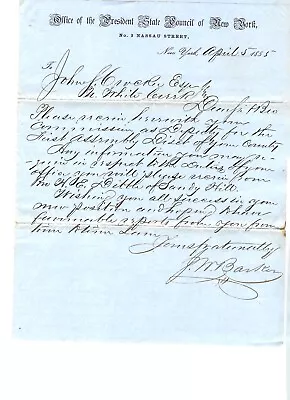 Office of the President State Council of New York,
No. 3 Nassau Street,
New York April 5 1855
To
John J Crocker Esqr
White Creek
Dear Sir & Bro
Please receive herewith your
Commission as Deputy for the
First Assembly Dist of your County
Any information you may re-
quire in respect to the duties of your
office you will please receive from
Bro H. E. Dibble of Sandy Hill.
Wishing you all success in your
new position and hoping to hear
favourable reports from you from
time to time I am
Yours fraternally
J. W. Barker